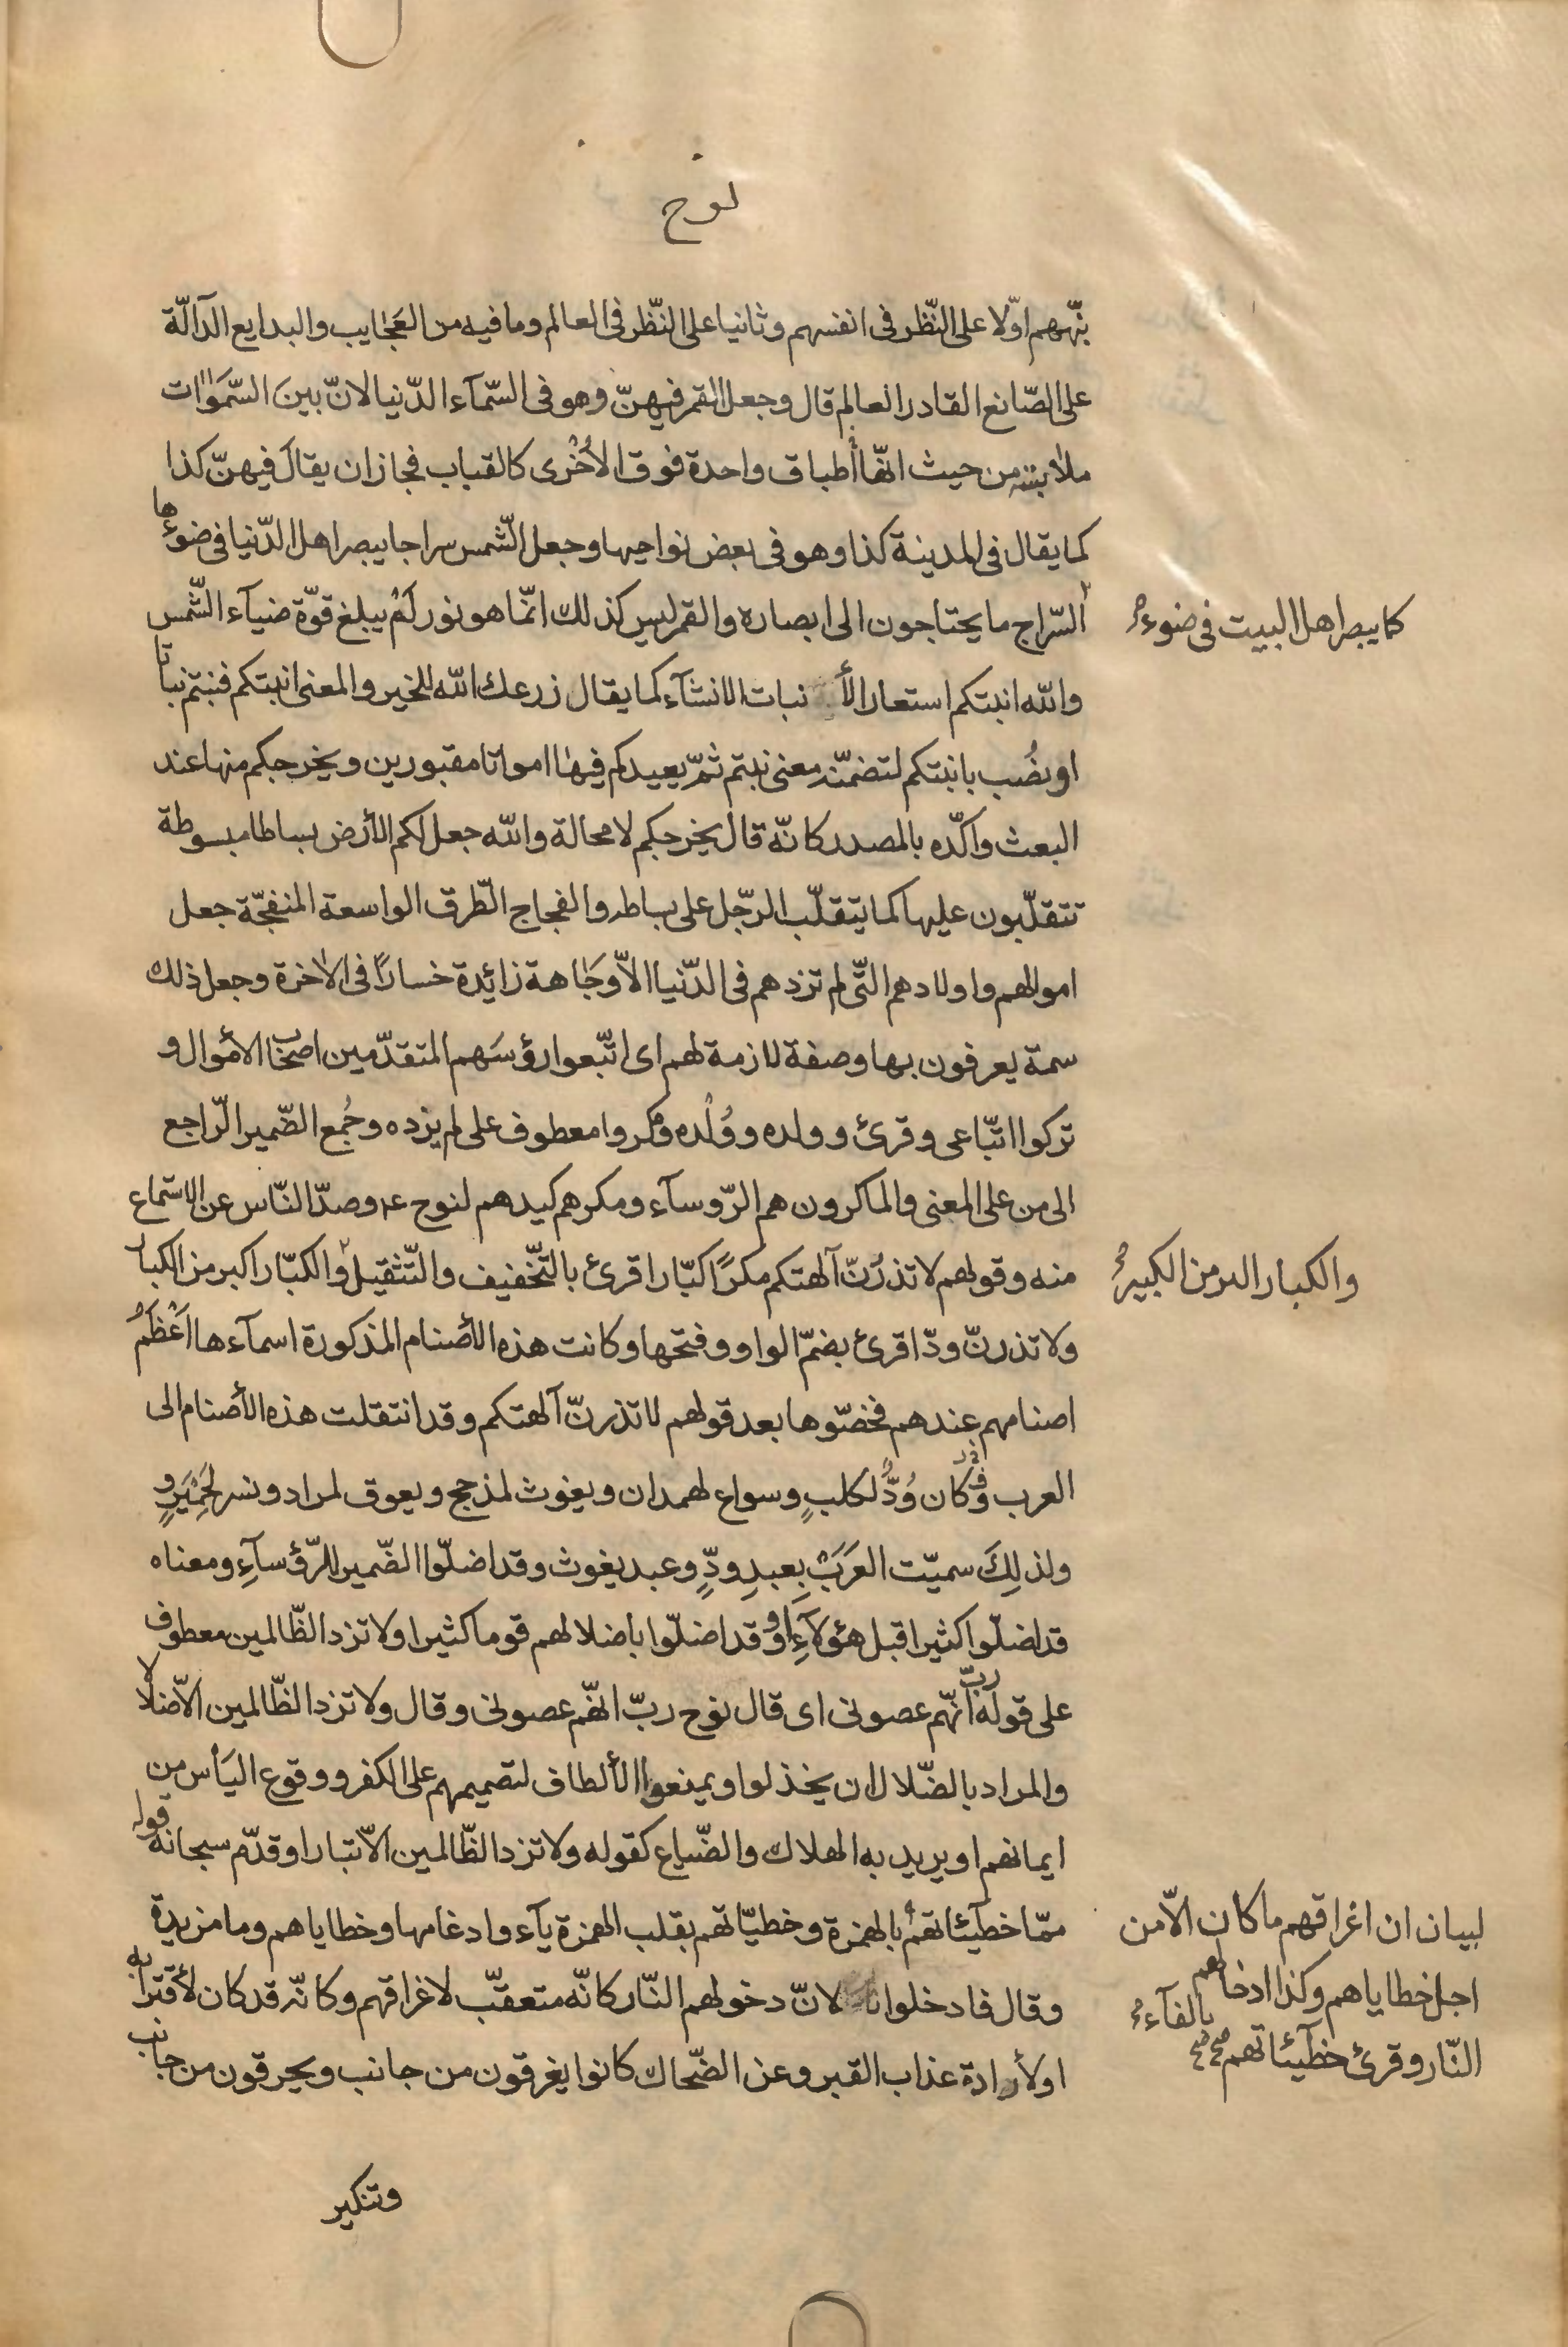 نوح
نبّههم اوّلا على النّظر فى انفسهم وثانيا على النّظر فى العالم وما فيه من العَجٰايب والبدايع الدّآلّة
على الصّانع القادر العالم قال وجعل القمر فيهنّ وهو فى السّمآء الدّنيا لانّ بينَ السّمَوٰات
ملٰابسته من حيث انّها أطباق واحدة فوق الأُخْرى كالقباب فجاز ان يقالَ فيهنّ كذا
كما يقال فى المدينة كذا وهو فى بعض نواحيها وجعل الشّمس سراجا يبصر اهل الدّنيا فى ضوءها
كما يبصر اهل البيت فى ضوء
السّراج ما يحتاجون الى ابصاره والقمر ليس كذلك انّما هو نور لَمْ يبلغ قوّة ضيآء الشّمس
والله انبتكم استعار الأنبات للانشآء كما يقال زرعك الله للخير والمعنى انبتكم فنبتم نباتا
او نصُب بانبتكم لتضمنّه معنى نبتم ثمّ يعيدكم فيهٰا امواتا مقبورين ويخرجكم منها عند
البعث واكّده بالمصدر كانّه قال يخرجكم لا محالة والله جعل لكم الأرض بساطا مبسوطة
تتقلّبون عليها كما يتقلّب الرّجل على بساطه والفجاج الطّرق الواسعة المنفجّة جعل
اموالهم واولادهم التّى لم تزدهم فى الدّنيا الاّ وجٰاهة زائدة خسارًا فى الاٰخرة وجعل ذلك
سمة يعرفون بها وصفة لازمة لهم اى اتّبعوا رؤسَهم المتقدّمين اصحٰاب الأموال و
تركوا اتّباعى وقرئ وولده ووُلْده ومكروا معطوف على لم يزده وجُمع الضّمير الرّاجع
الى من على المعنى والماكرون هم الرّوسآء ومكرهم كيدهم لنوح عم وصدّ النّاس عن الاستماع
منه وقولهم لا تذرُنّ آلهتكم مكرًا كبّارا قرئ بالتّخفيف والتّثقيل والكبّار اكبر من الكبار
والكبار اكبر من الكبير
ولا تذرنّ ودّا قرئ بضمّ الواو وفتحها وكانت هذه الأصنام المذكورة اسمآءها اَعْظَمُ
اصنامهم عندهم فخصّوها بعد قولهم لا تذرنّ آلهتكم وقد انتقلت هذه الأصنام الى
العرب فكان وُدُّ لكلبٍ وسواع لهمدان ويغوث لمذحج ويعوق لمراد ونسر لِحَمِيْرٍ و
ولذلِكَ سميّت العَرَبُ بِعبدِ ودٍّ وعبد يغوث وقد اضلّوا الضّمير للرّؤسآءِ ومعناه
قد اضلّوا كثيرا قبل هؤلآءِ او وقد اضلّوا بأضلالهم قوما كثيرا ولا تزد الظّالمين معطوف
على قوله ربّ انّهم عصونى اى قال نوح ربّ انّهم عصونى وقال ولا تزد الظّالمين الاّ ضلالا
والمراد بالضّلال ان يخذلوا ويمنعوا الألطاف لتصميمهم على الكفر ووقوع اليَأس من
ايمانهم او يريد به الهلاك والضّياع كقوله ولا تزد الظّالمين الاّ تبارا وقدّم سبحانه قوله
ممّا خطآيئاتهم بالهمزة وخطيّاتهم بقلب الهمزة يآء وادغامها وخطاياهم وما مزيدة
لبيان ان اغراقهم ما كان الاّ من
اجل خطاياهم وكذا ادخالهم
النّار وقرئ خطآيئاتهم صح صح
بالفآء
وقال فادخلوا نارا لانّ دخولهم النّار كانّه متعقّب لاغراقهم وكانّه قد كان لأقترابه
او لأرادة عذاب القبر وعن الضّحاك كانوا يغرقون من جانب ويحرقون من جانب
وتنكير